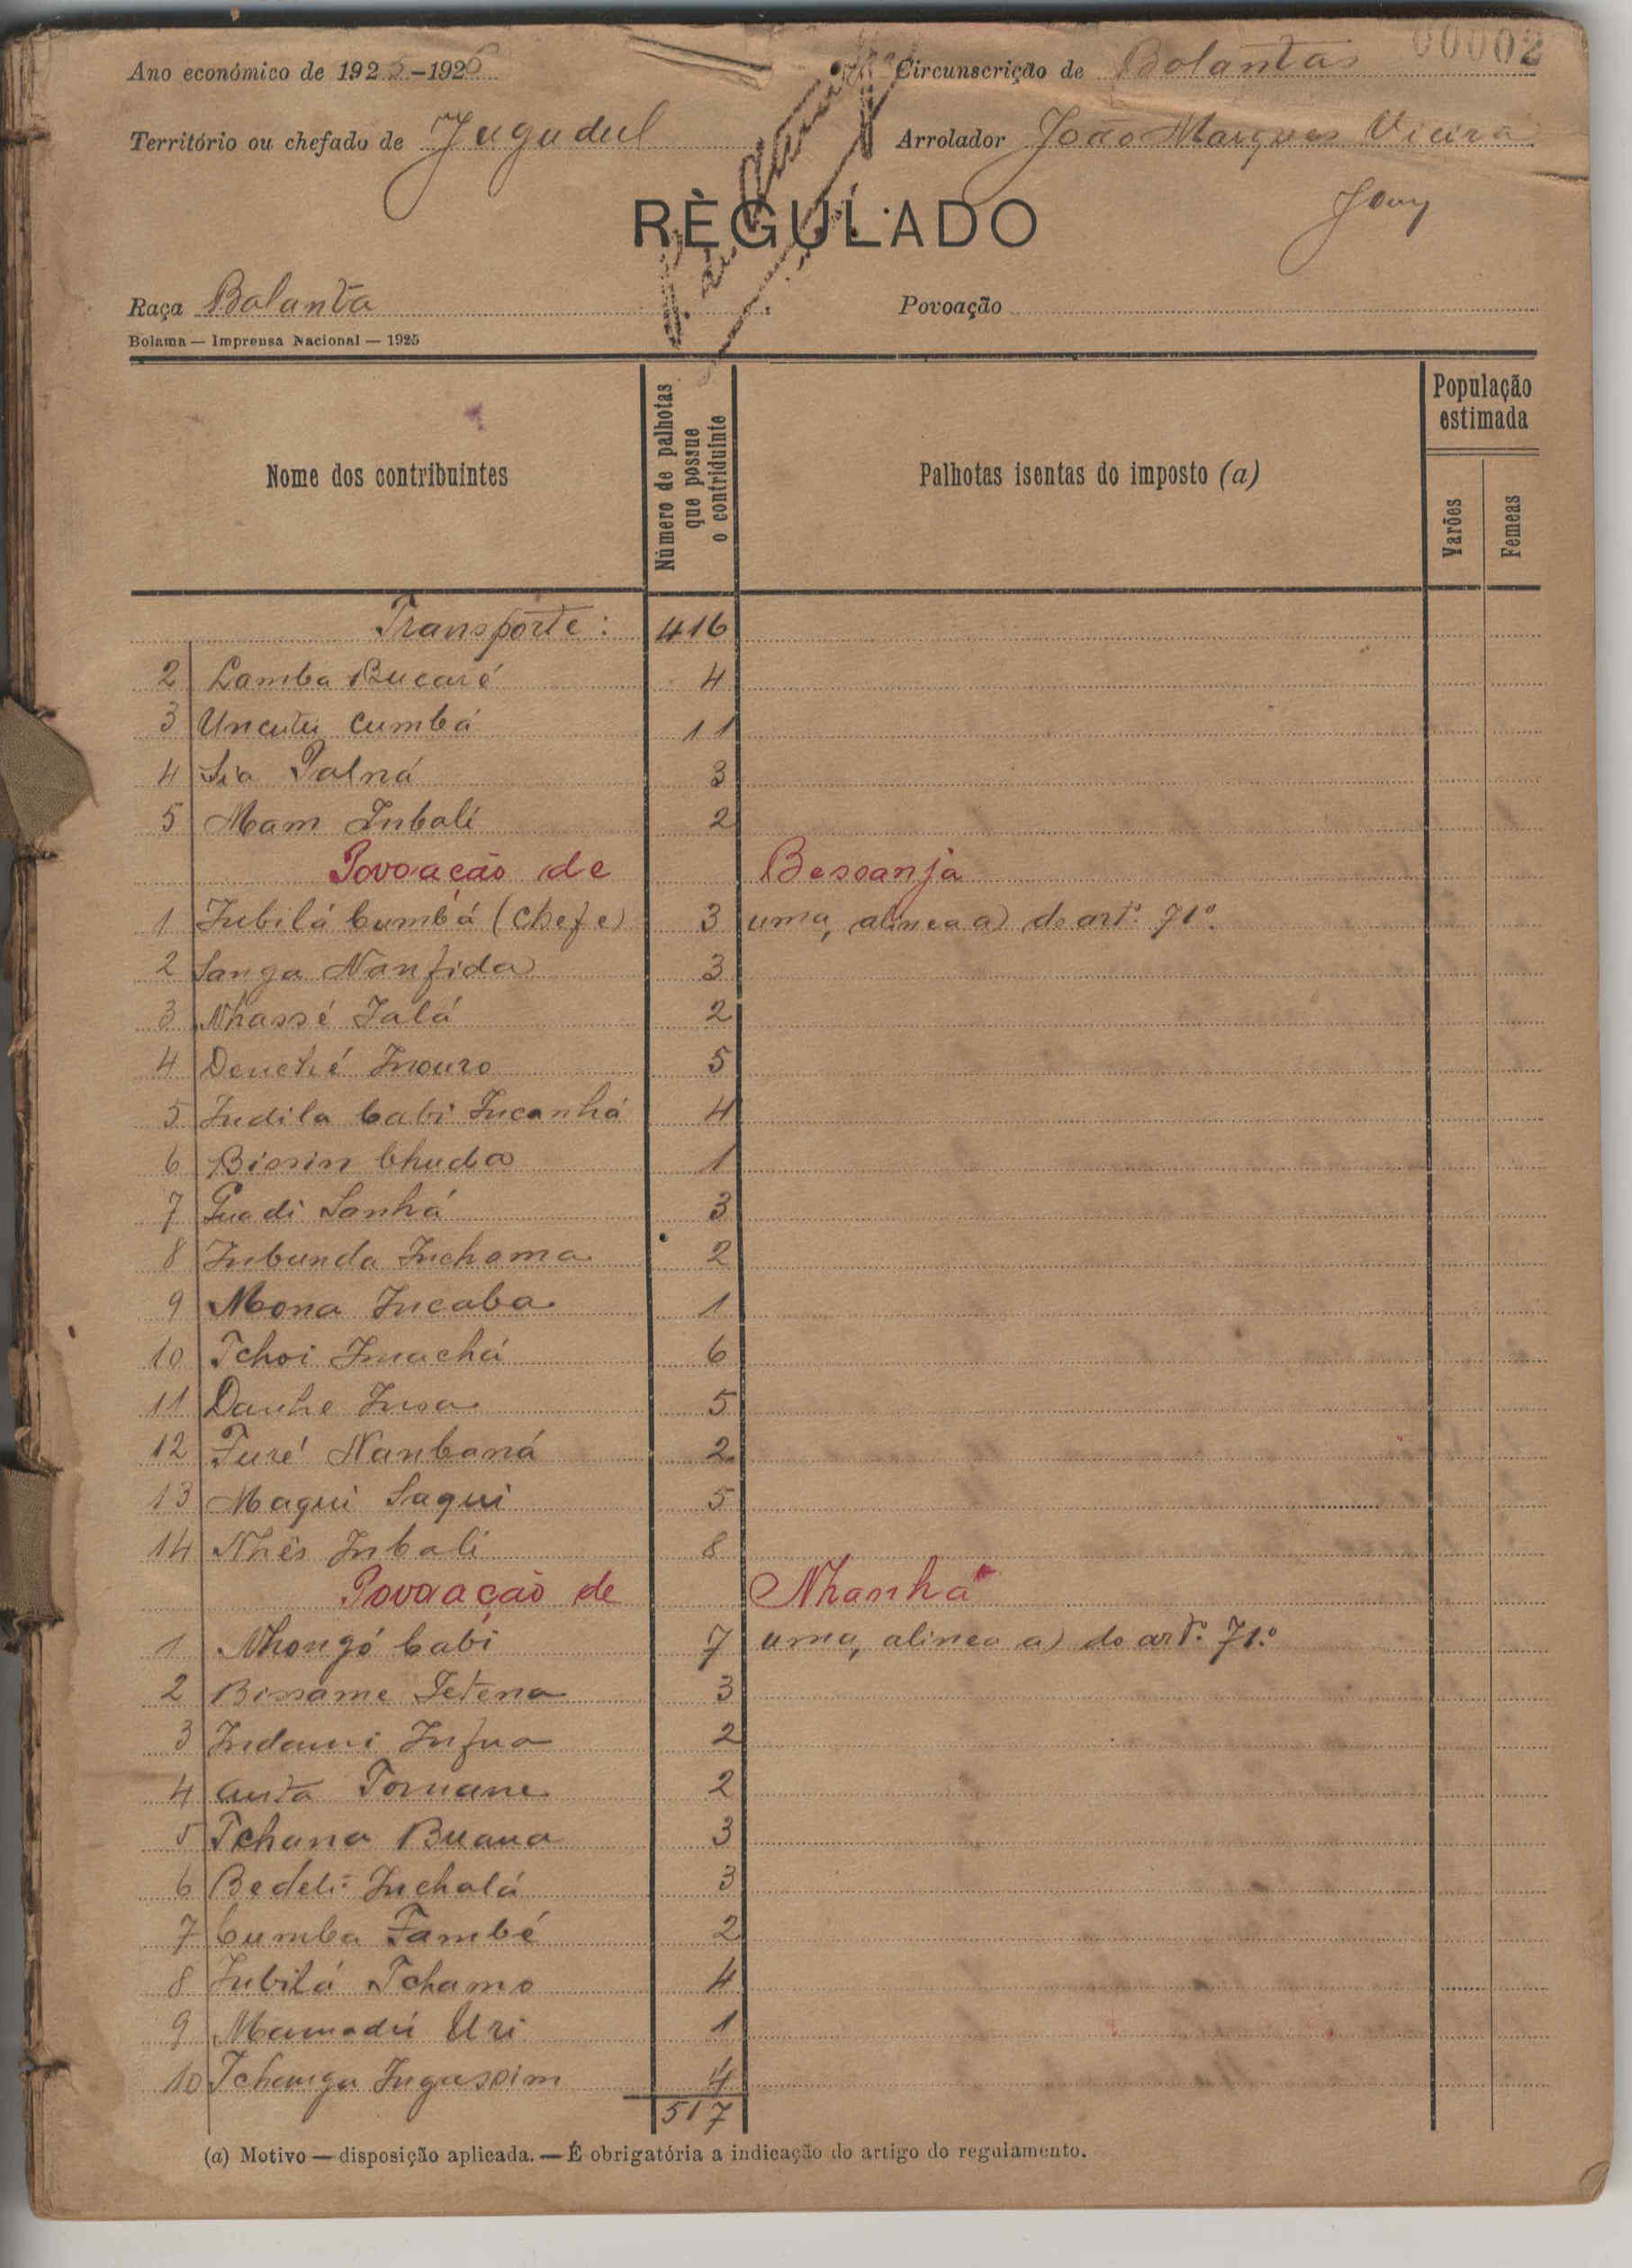 00002
Ano económico de 1925-1926 Circunscrição de Balantas
Território ou chefado de Jugudul Arrolador João Marques Vieira
RÈGULADO
Raça Balanta Povoação
Bolama — Imprensa Nacional — 1925
Nome dos contribuintes Número de palhotas que possue o contriduinte Palhotas isentas do imposto (a) População estimada
Varões Femeas
Transporte: 416
2 Lamba Bucaré 4
3 Uncuté Cumbá 11
4 Sia Palná 3
5 Mam Inbali 2
Povoação de Bessanja
1 Inbilá Cumbá (Chefe) 3 uma, alinea a) do artº. 71º.
2 Sanga Nanfida 3
3 Nhassé Ialá 2
4 Denché Inouro 5
5 Indila Cabi Incanhá 4
6 Bissin Chuda 1
7 Quadi Sanhá 3
8 Inbunda Inchama 2
9 Mona Incaba 1
10 Tchoi Inuachá 6
11 Danhe Insa 5
12 Furé Nanbaná 2
13 Maqui Saqui 5
14 Nhês Inbali 8
Povoação de Nhanhá
1 Nhongó Cabi 7 uma, alinea a) do artº. 71.º
2 Bissame Tetena 3
3 Indami Infua 2
4 Anta Tornane 2
5 Tchana Buana 3
6 Bedeli Inchalá 3
7 Cumba També 2
8 Inbitá Tchamo 4
9 Mamadú Uri 1
10 Tchanga Ingassim 4
517
(a) Motivo — disposição aplicada. — É obrigatória a indicação do artigo do regulamento.